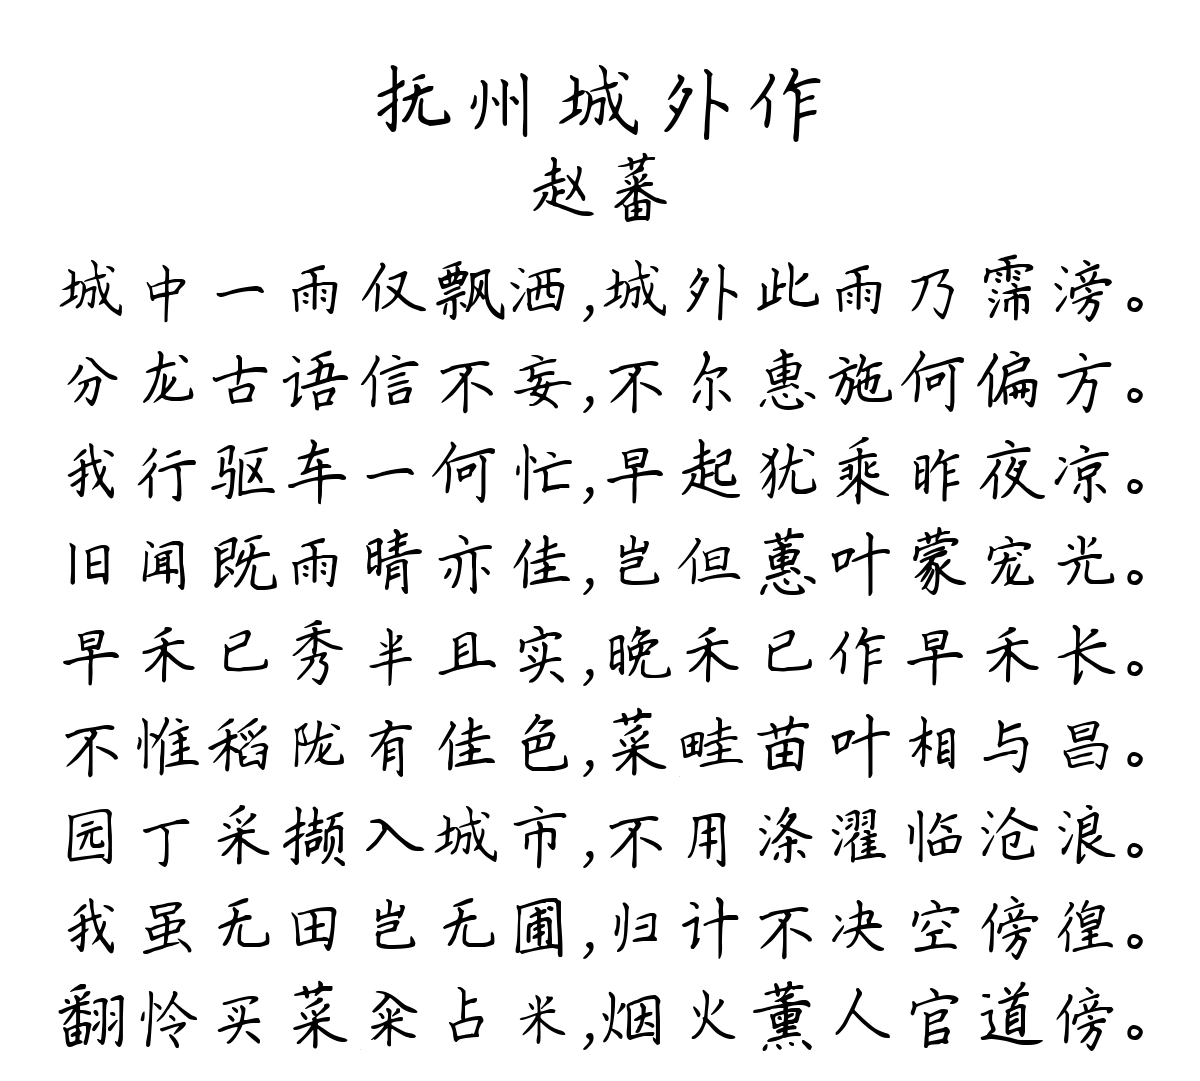 抚州城外作
赵蕃
城中一雨仅飘洒,城外此雨乃霈滂。
分龙古语信不妄,不尔惠施何偏方。
我行驱车一何忙,早起犹乘昨夜凉。
旧闻既雨晴亦佳,岂但蕙叶蒙宠光。
早禾已秀半且实,晚禾已作早禾长。
不惟稻陇有佳色,菜畦苗叶相与昌。
园丁采撷入城市,不用涤濯临沧浪。
我虽无田岂无圃,归计不决空傍徨。
翻怜买菜籴占米,烟火薰人官道傍。